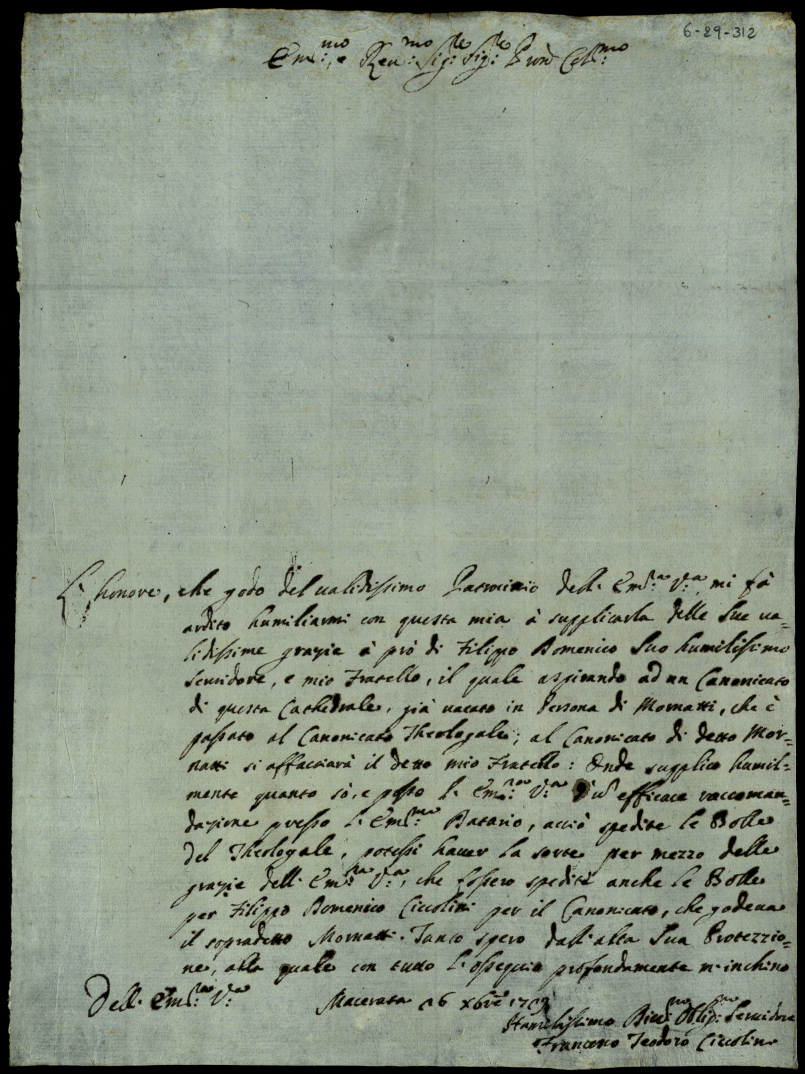 6-29-312
Em:mo, e Reu:mo Sig:re Sig:re Pron Coll:mo
L'honore, che godo del ualidissimo Patrocinio dell'Em:za V:a, mi fà
ardito humiliarmi con questa mia à supplicarla delle Sue ua=
lidissime grazie à prò di Filippo Domenico Suo humilissimo
Seruidore, e mio Fratello, il quale aspirando ad un Canonicato
di questa Cathedrale, già uacato in Persona di Mornatti, che è
passato al Canonicato Theologale; al Canonicato di detto Mor=
natti si affacciarà il detto mio Fratello: Onde supplico humil=
mente quanto sò, e posso l'Em:za V:a d'un' efficace raccoman=
dazione presso l'Em:mo Datario, acciò spedite le Bolle
del Theologale, potessi hauer la sorte per mezzo delle
grazie dell'Em:za V:a, che fossero spedite anche le Bolle
per Filippo Domenico Ciccolini per il Canonicato, che godeua
il sopradetto Mornatti. Tanto spero dall'alta Sua Protezzio=
ne, alla quale con tutto l'ossequio profondamente m'inchino
Dell'Em:za V:a Macerata 26 Xbre
Humilissimo Diu:mo Oblig:mo Seruidore
Francesco Teodoro Ciccolini